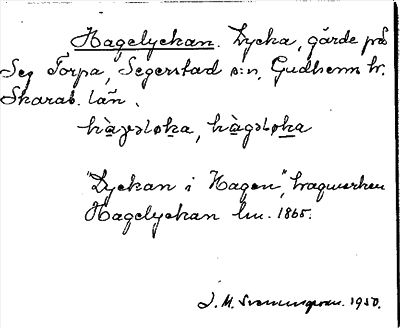 Hagelyckan. Lycka, gärde på
Seg Torpa, Segerstad s:n, Gudhems hr.
Skarab. län.
hàɣəløka, hàgəløka
"Lyckan i Hagen",
Hagelyckan lm. 1865.
J. M. Svenungsson. 1950.